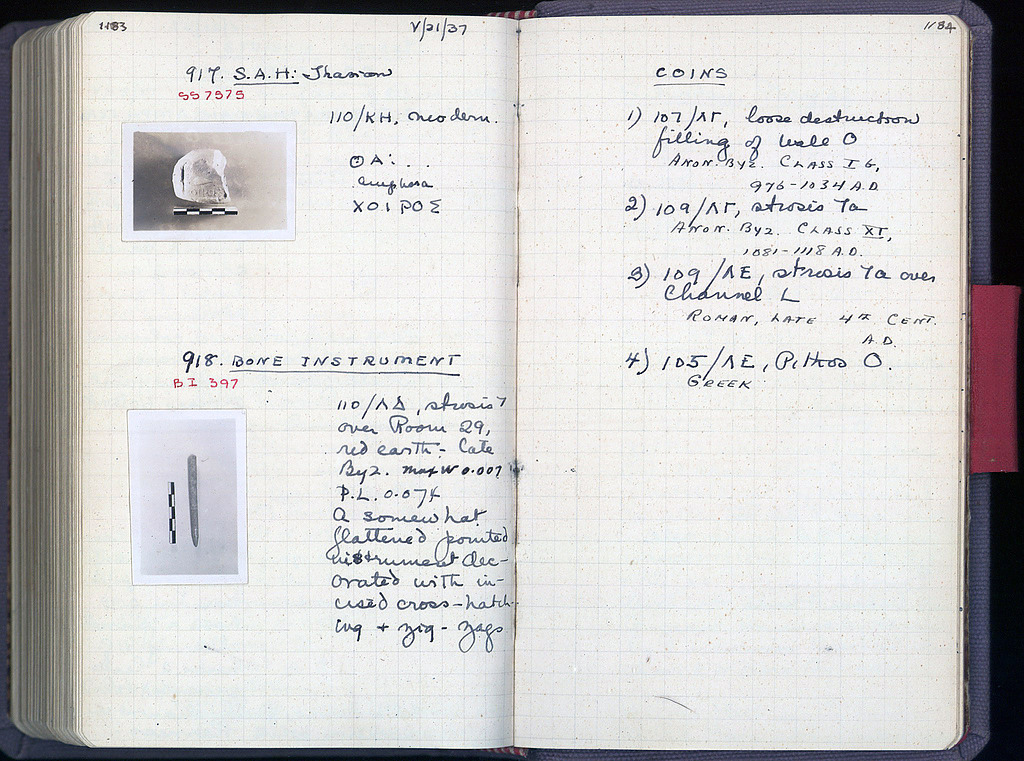 1183
V/21/37
917. S.A.H: Thasian
SS 7575
110/KH, modern.
ΘΑ:...
amphora
ΧΟΙΡΟΣ
918. BONE INSTRUMENT
BI 397
110/ΛΔ, strosis 7
over Room 29,
red earth - Late
Byz. max W 0.007
P.L. 0.074
A somewhat
flattened pointed
instrument dec-
orated with in-
cised cross-hatch-
ing + zig-zags
1184
COINS
1) 107/ΛΓ, loose destruction
filling of well O
ANON. BYZ. CLASS I G,
976-1034 A.D.
2) 109/ΛΓ, strosis 7a
ANON. BYZ. CLASS XI,
1081-1118 A.D.
3) 109/ΛΕ, strosis 7a over
Channel L
ROMAN, LATE 4TH CENT.
A.D.
4) 105/ΛΕ, Pithos O.
GREEK